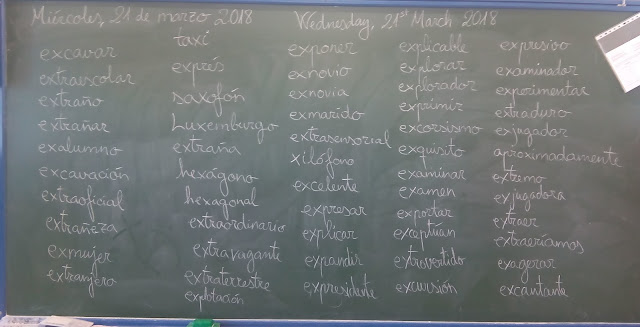 Miércoles, 21 de marzo 2018
Wednesday, 21st March 2018
excavar
extraescolar
extraño
extrañar
exalumno
excavación
extraoficial
extrañeza
exmujer
extranjero
taxi
exprés
saxofón
Luxemburgo
extraña
hexágono
hexagonal
extraordinario
extravagante
extraterrestre
explotación
exponer
exnovio
exnovia
exmarido
extrasensorial
xilófono
excelente
expresar
explicar
expandir
expresidente
explicable
explorar
explorador
exprimir
excorsismo
exquisito
examinar
examen
exportar
exceptúan
extrovertido
excursión
expresivo
examinador
experimentar
extraduro
exjugador
aproximadamente
extremo
exjugadora
extraer
extraeríamos
exagerar
excantante